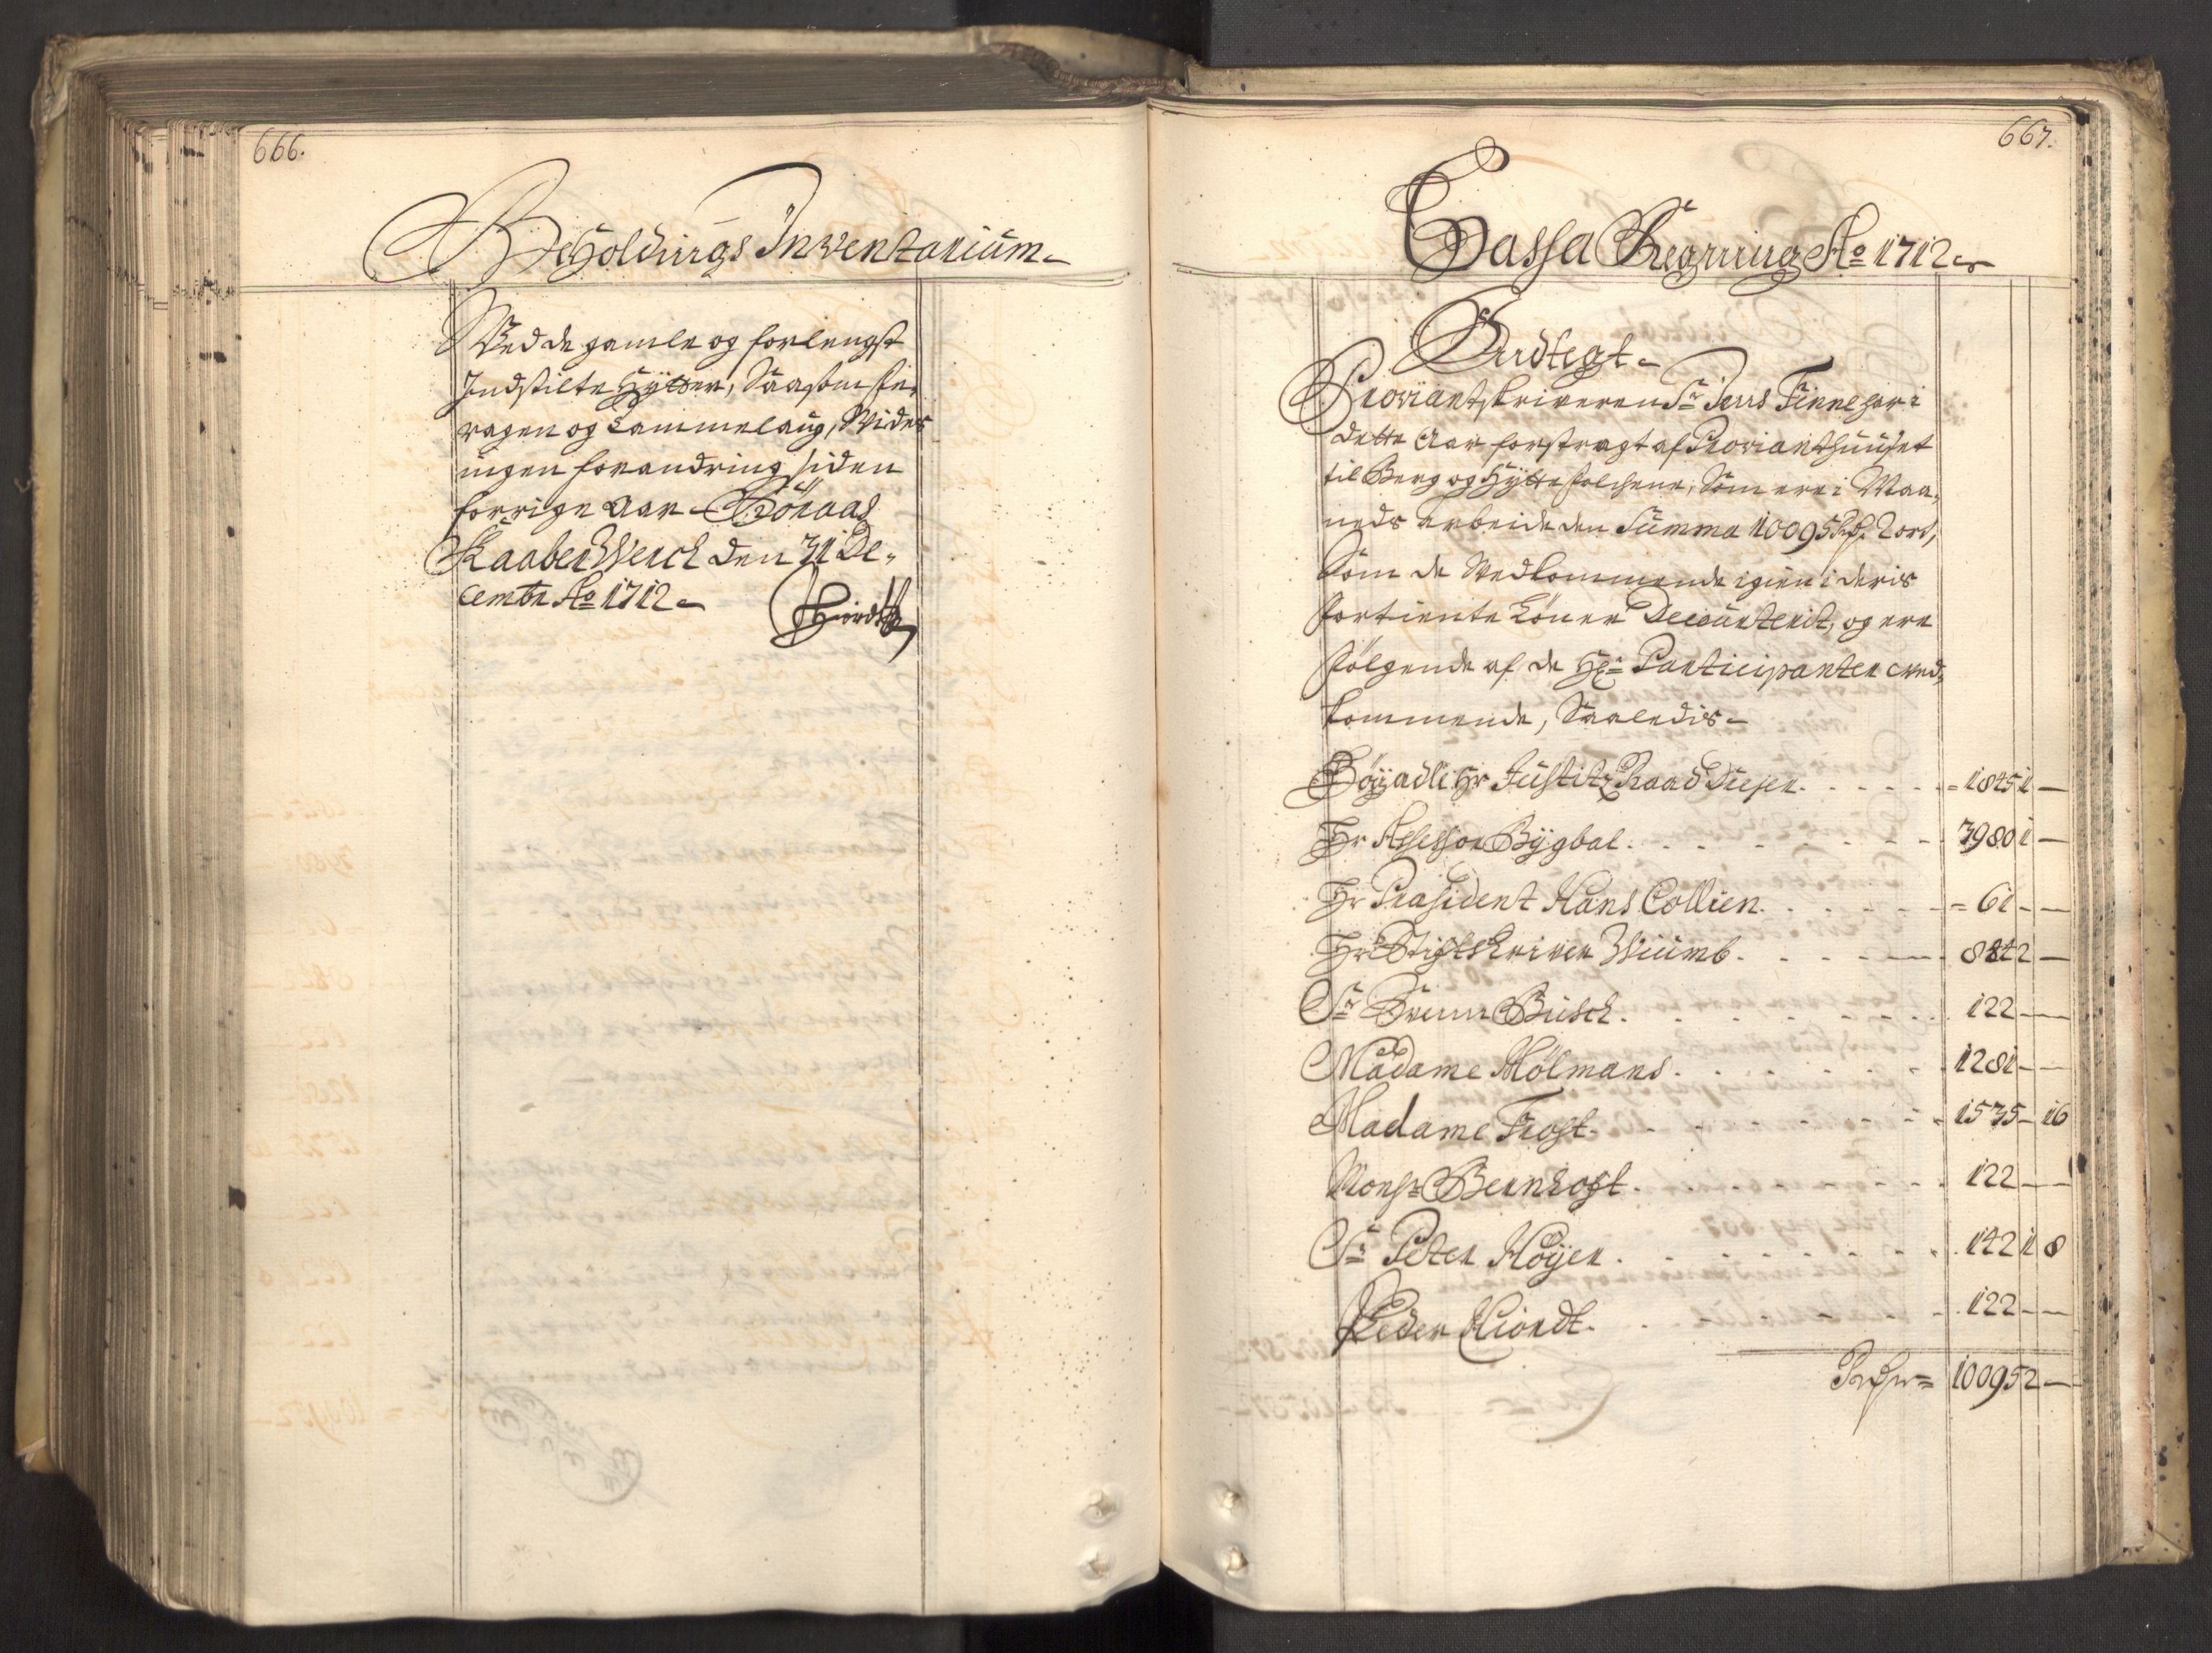 666.
Beholdnings Inventarium
Ved de gamle og forlengst
Indstilte Hÿtter, Saasom
og Lammelaug, Vides
ingen forandring siden
forrige Aar Röraas
Kaaber Werck den 31 De,
cembr Ao 1712
Hiordt
667.
Cassa Regning Ao 1712
Indtegt
Proviantskriveren Sr Jens Finne har i
dette Aar forstragt af Provianthuuset
til Berg og Hÿtte folckene, Som ere i Maa,
neds arbeide den Summa 10095 Rdr 2 ort,
Som de Vedkommende igien i deris
fortiente Löner Decourterit, og ere
fölgende af de Hr: Participanter ved,
kommende, Saaledis
Höÿadle Hr Justitz Raad Dreÿer = 1845 1 —
Hr Assessor Bÿgbal 3980 1 —
Hr Præsident Hans Collien = 61 — —
Hr Stiftskriver Wiumb 884 2 —
Sr Svenn Busch 122 — —
Madame Hölmans 1281 — —
Madame Frost 1535 — 16
Monsr Bernhoft 122 — —
Sr Peter Höÿer 142 1 8
Peder Hiordt 122 — —
10095 2 —